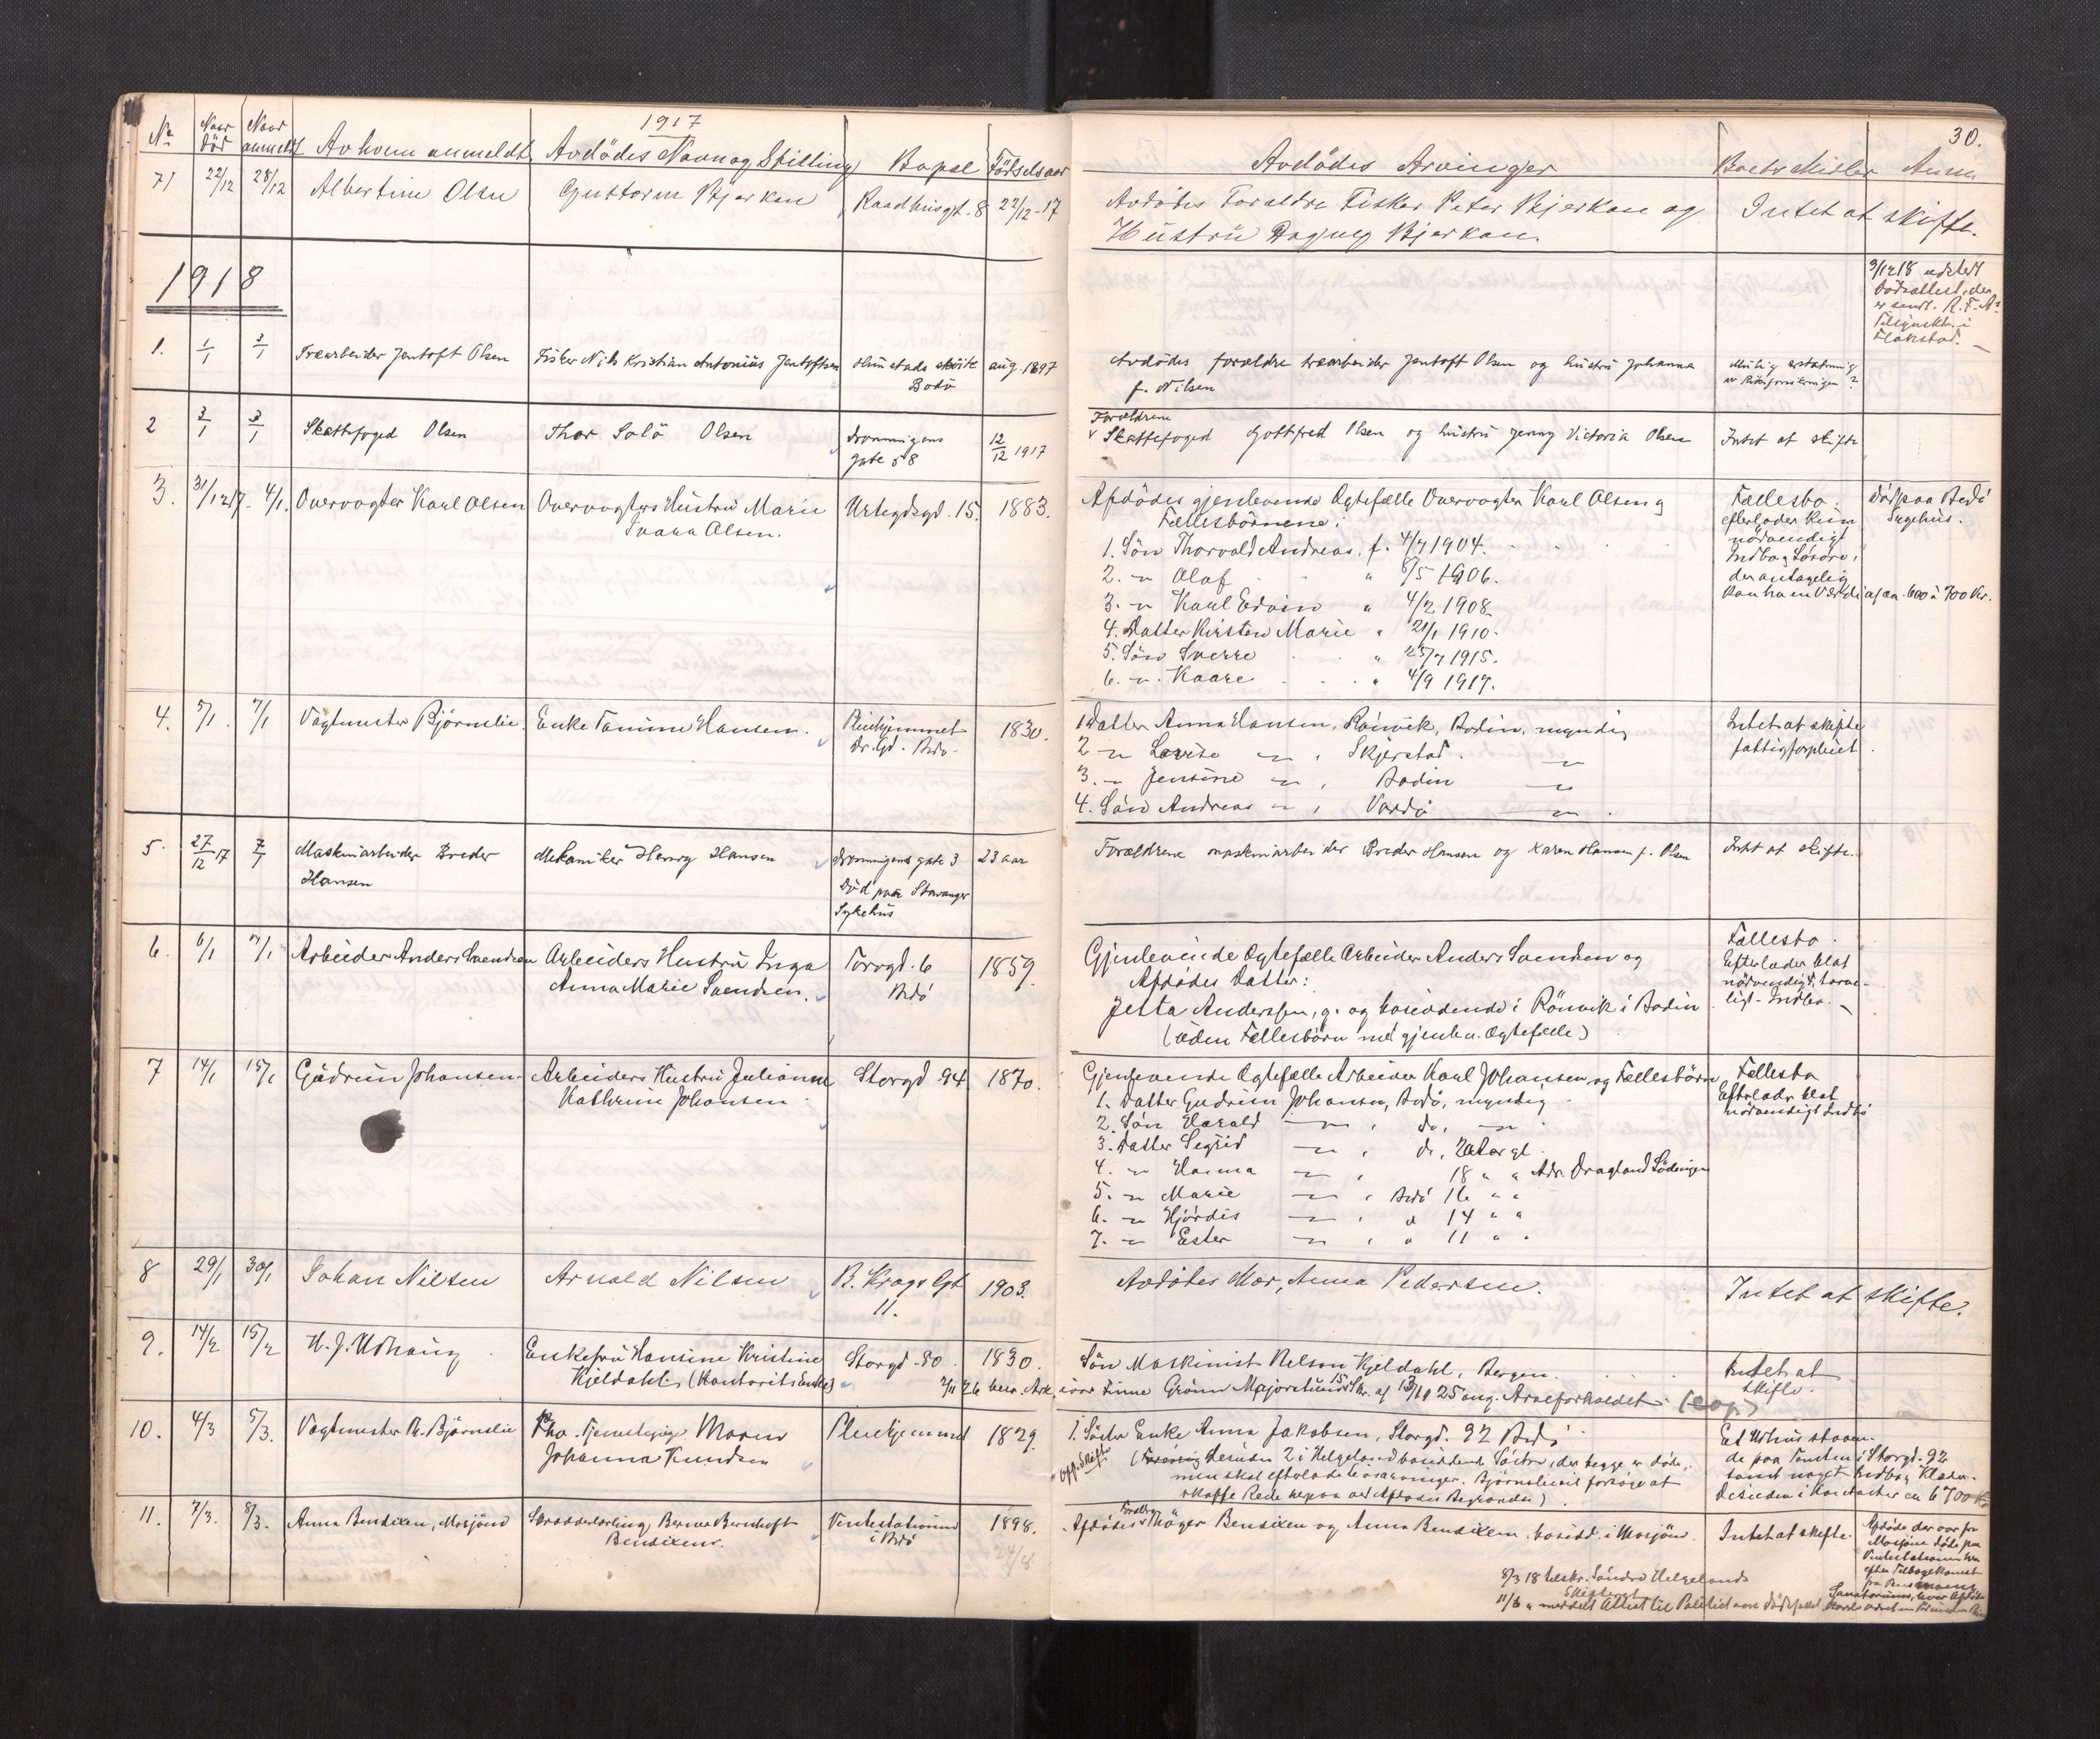 1917
30.
No Naar död Naar anmeldt Av hvem anmeldt Avdödes Navn og Stilling Bopæl Födselsaar Avdödes Arvinger Boets Midler Anm
71 22/12 28/12 Albertine Olsen Guttorm Bjerkan Raadhusgt. 8 22/12-17 Avdödes Forældre Fisker Peter Bjerkan og Intet at skifte.
Hustru Dagny Bjerkan.
1918
3/12 18 utstedt
Dödsattest, den
er sendt R.F.A's
Tilsynskt. i
Flakstad.
1. 1/1 3/1 Træarbeider Jentoft Olsen Fisker Nils Kristian Antonius Jentoftsen Bodö aug. 1897 Avdödes forældre træarbeider Jentoft Olsen og hustru Johanna
f. Nilsen
Mulig erstatning
av Riksforsikringen ?
2 3/1 3/1 Skattefoged Olsen Thor Solö Olsen Dronningens
gate 58
12/12 1917
Forældrene
Skattefoged Gottfred Olsen og hustru Jenny Victoria Olsen Intet at skifte
3. 31/12 17. 4/1. Overvogter Karl Olsen Overvogters Hustru Marie
Ivara Olsen.
Urtegdsgd. 15. 1883.
Afdödes gjenlevende Ægtefælle Overvogter Karl Olsen og
Fællesbörnene:
1. Sön Thorvald Andreas, f. 4/7 1904.
2. " Olaf " 8/5 1906.
3. " Karl Edvin " 4/2 1908
4. Datter Kirsten Marie " 21/1 1910.
5. Sön Sverre " 25/7 1915.
6. " Kaare " 4/9 1917.
Fællesbo.
efterlader kun
nödvendigt
Indbo og Lösöre,
der antagelig
kan ha en Værdi af ca. 600 à 700 Kr.
Död paa Bodö
Sygehus.
4. 5/1. 7/1 Vagtmester Björnslie. Enke Tamine Hansen. Pleiehjemmet
Dr. Gd. Bodö.
1830.
1 Datter Anna Hansen, Rönvik, Bodin, myndig
2 " Lovise " , Skjerstad. "
3. " Jensine " , Bodin "
4. Sön Andreas " , Vardö " .
Intet at skifte
fattigforpleiet.
5. 27/12 17 7/1 Maskinarbeider Breder
Hansen
Mekaniker Henry Hansen Dronningens gate 3
Död paa Stavanger
Sykehus
23 aar
Forældrene maskinarbeider Breder Hansen og Karen Hansen f. Olsen Intet at skifte.
6. 6/1 7/1 Arbeider Anders Svendsen Arbeiders Hustru Inga
Anna Marie Svendsen.
Torvgd. 6
Bodö
1859.
Gjenlevende Ægtefælle Arbeider Anders Svendsen og
Afdödes Datter:
Jetta Anderssen, g. og bosiddende i Rönvik i Bodin
(uden Fællesbörn med gjenlev. Ægtefælle)
Fællesbo.
Efterlader blot
nödvendigt, tarve-
ligt Indbo.
7 14/1 15/1 Gudrun Johansen Arbeiders Hustru Julianne
Kathrine Johansen.
Storgd. 94 1870.
Gjenlevende Ægtefælle Arbeider Karl Johansen og Fællesbörn
1. Datter Gudrun Johansen, Bodö, myndig
2. Sön Harald " , do, " .
3. Datter Sigrid " , do, 20 Aar gl.
4. " Hanna " , 18 " " Adr. Dragland Lödingen
5. " Marie " , Bodö 16 " "
6. " Hjördis " , " 14 " "
7. " Ester " , " 11 " "
Fællesbo
Efterlader blot
nödvendigt Indbo
8 29/1 30/1 Johan Nilsen Arnold Nilsen B. Krogs Gt
11.
1903. Avdödes Mor, Anna Pedersen. Intet at skifte.
9. 14/2 15/2 H. J. Urhaug Enkefru Hansine Kristine
Kjeldahl, (Kontorists Enke)
Storgd. 80. 1830.
Sön Maskinist Nelson Kjeldahl, Bergen. Intet at
skifte.
2/11 26 besv. Finne Grönn Majorstuens Skr. af 13/10 25 ang. Arveforholdet. (cop)
10. 4/3 5/3. Vagtmester R. Björnslie Fhv. Tjenestepige Maren
Johanna Knudsen
Pleiehjemmet 1829.
1. Söster Enke Anna Jakobsen, Storgd. 92 Bodö
Opf. Skifte
(desuden 2 i Helgeland bosiddende Söstre, der begge er döde,
men skal efterlade Livsarvinger. Björnslie vil forsöge at
skaffe Rede herpaa ved Afdödes Begravelse)
Et Uthus staaen-
de paa Tomten i Storgd. 92
samt noget Indbo og Klæder.
Desuden i Kontanter ca 6700 Kr
11. 7/3. 8/3. Anna Bendixen, Mosjöen Skrædderlærling Berner Bernhoft
Bendixen.
Ventestationen
i Bodö
1898.
24/8
Afdödes Forældre Bendixen og Anna Bendixen, bosidd. i Mosjöen. Intet at skifte.
Afdöde, der var fra
Mosjöen döde paa
Ventestationen her
efter Tilbagekomst
fra
Sanatorium, hvor Afdöde
8/3 18 tilskr. Söndre Helgelands
Skifteret
11/6 " meddelt Attest til Politiet om dödsfallet